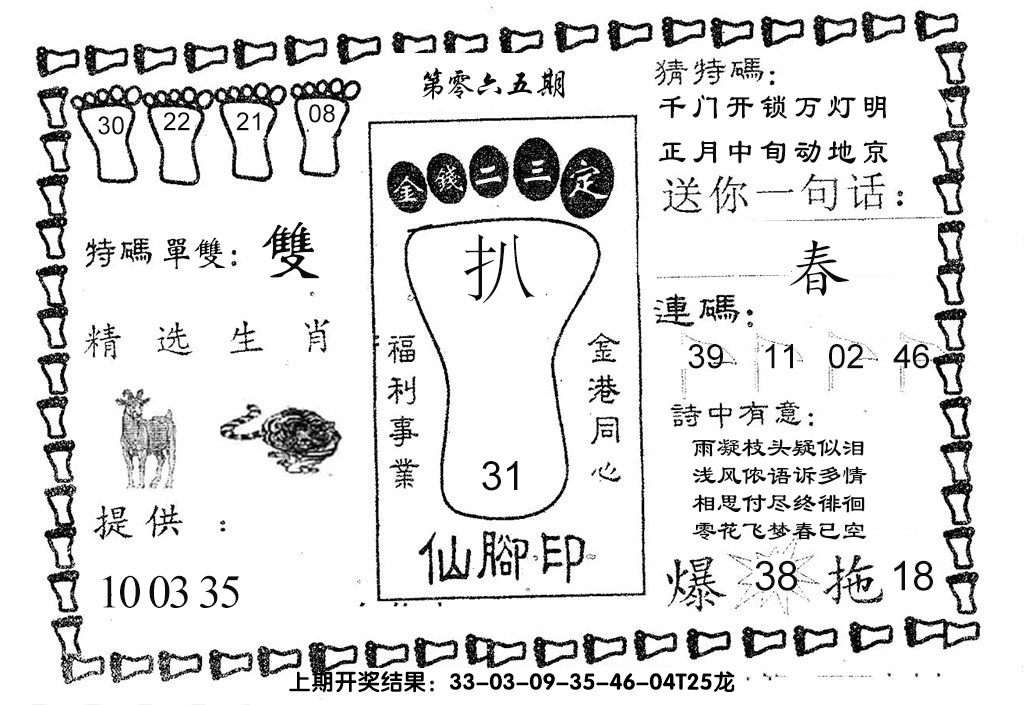 第零六五期
30 22 21 08
特碼單雙：雙
精选生肖
提供：
10 03 35
金錢二三定
扒
31
福利事業
金港同心
仙腳印
猜特碼：
千门开锁万灯明
正月中旬动地京
送你一句话：
春
連碼：
39 11 02 46
詩中有意：
雨凝枝头疑似泪
浅风侬语诉多情
相思付尽终徘徊
零花飞梦春已空
爆 38 拖 18
上期开奖结果：33-03-09-35-46-04T25龙